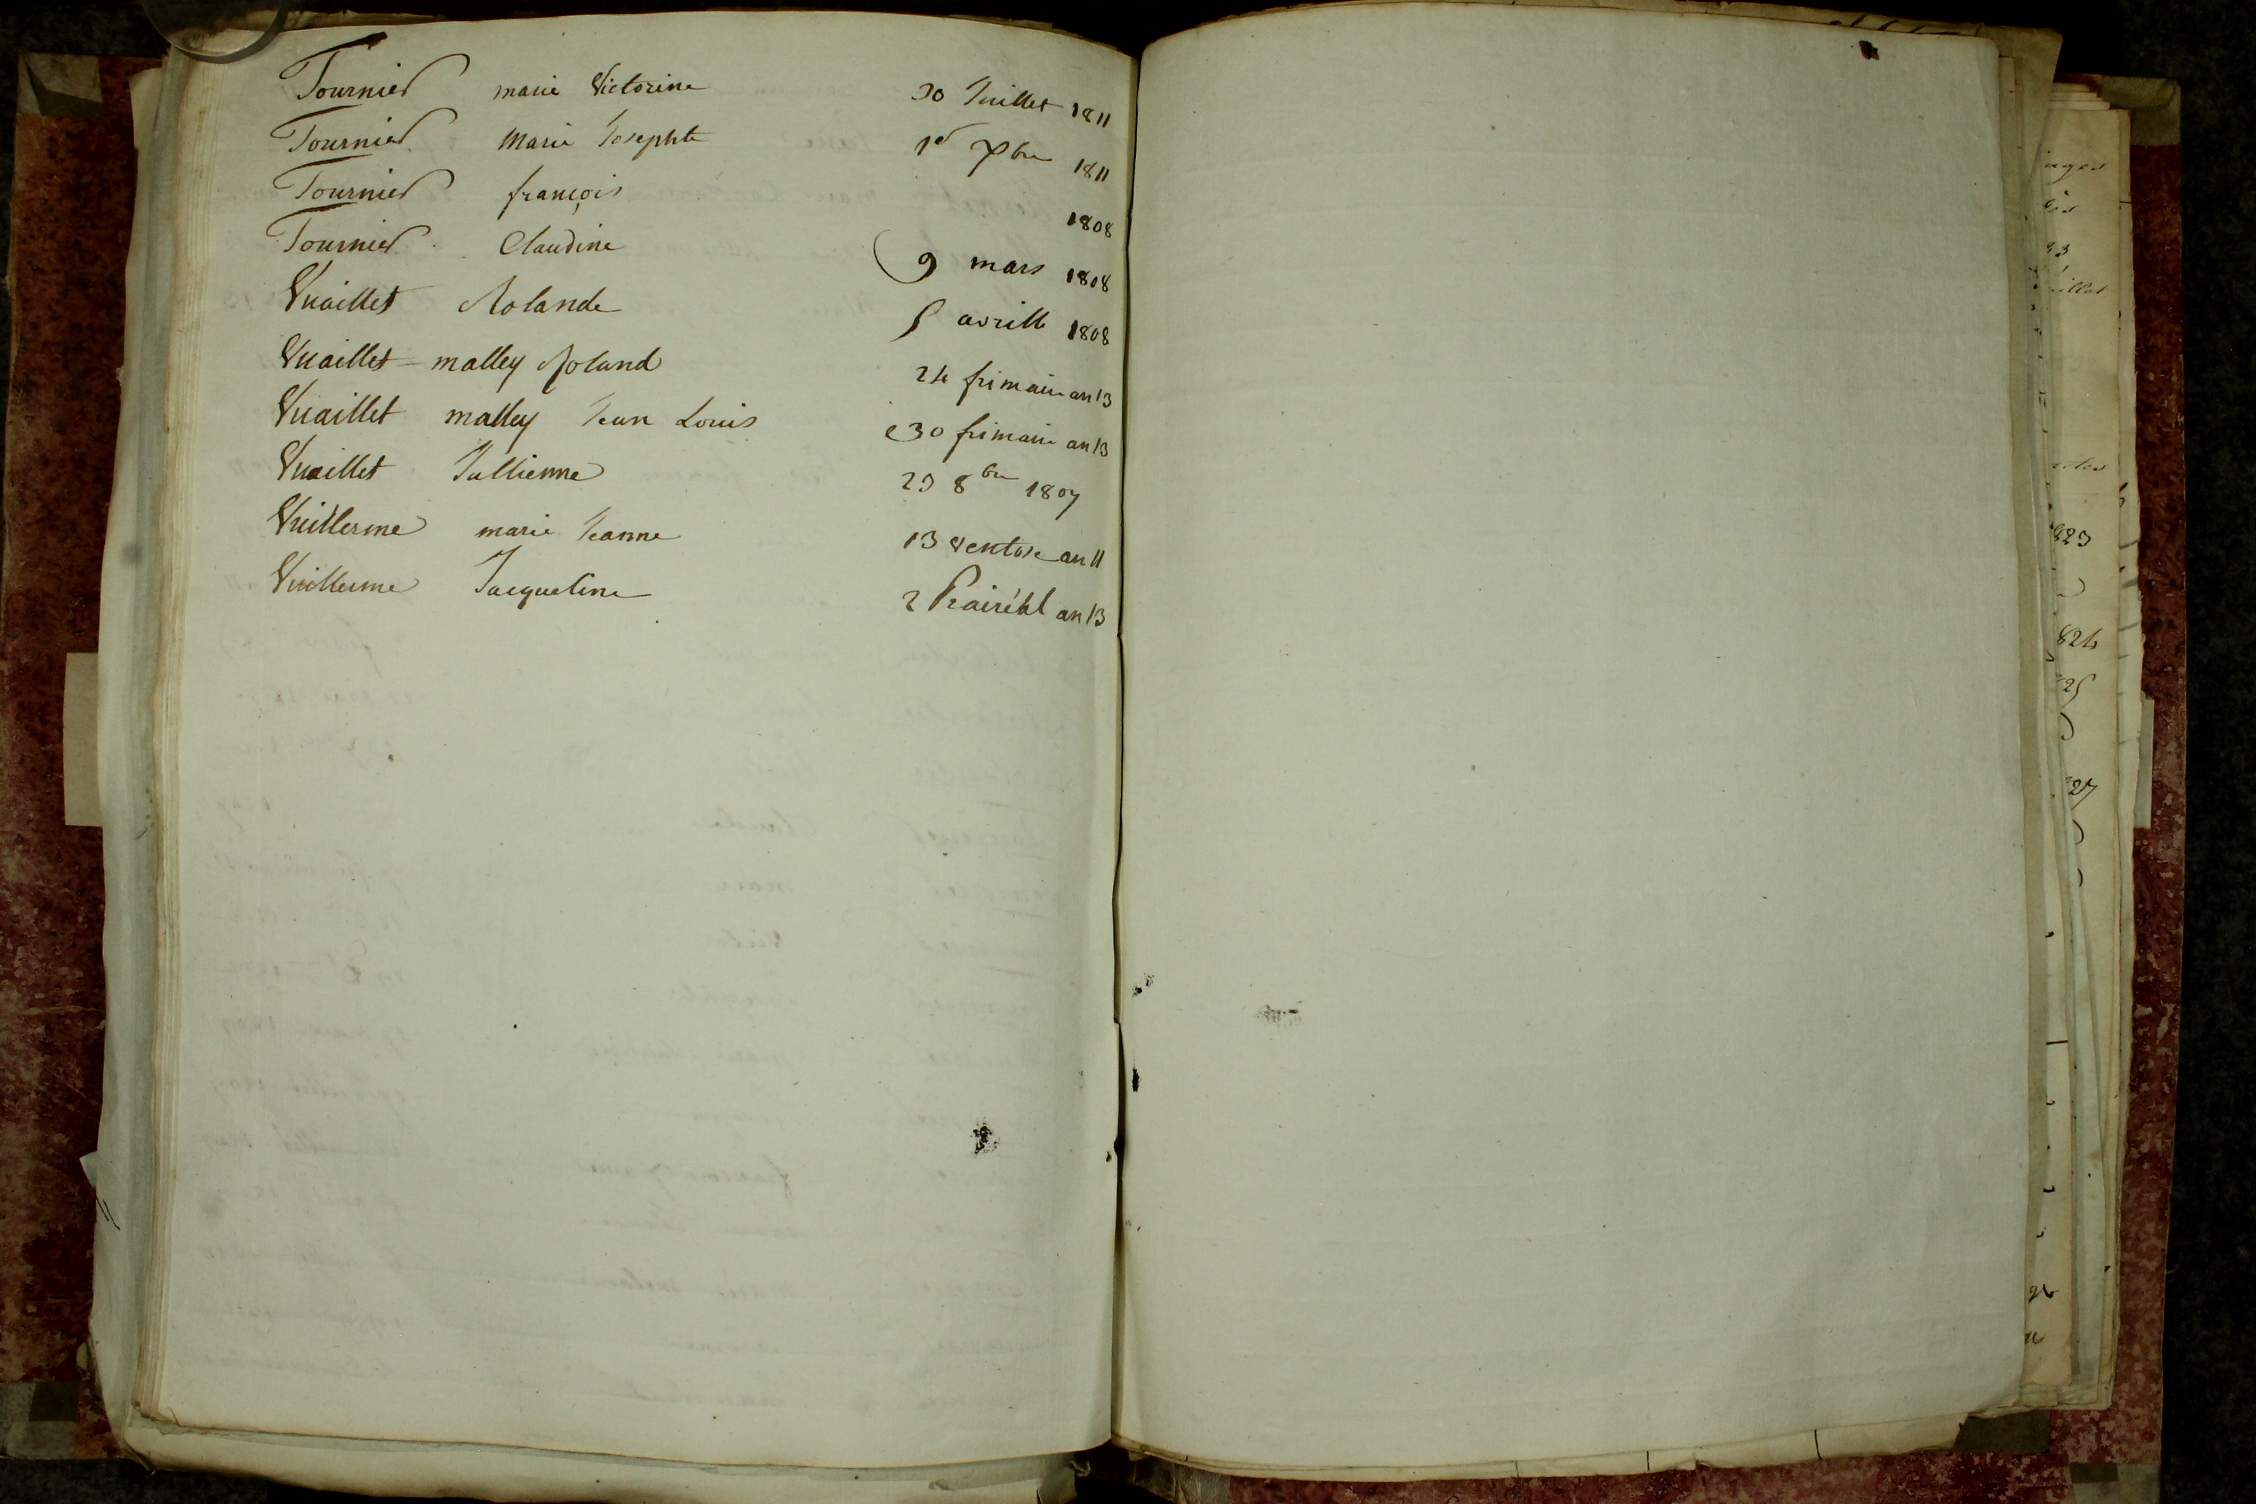 Tournier marie Victorine 30 Juillet 1811
Tournier Marie Josephte 1er Xbre 1811
Tournier françois 1808
Tournier Claudine 9 mars 1808
Vuaillet Rolande 5 avrille 1808
Vuaillet malley Roland 24 frimaire an 13
Vuaillet malley Jean Louis 30 frimaire an 13
Vuaillet Jullienne 23 8bre 1807
Vuillerme marie Jeanne 13 Ventose an 11
Vuillerme Jacqueline 2 Prairéal an 13